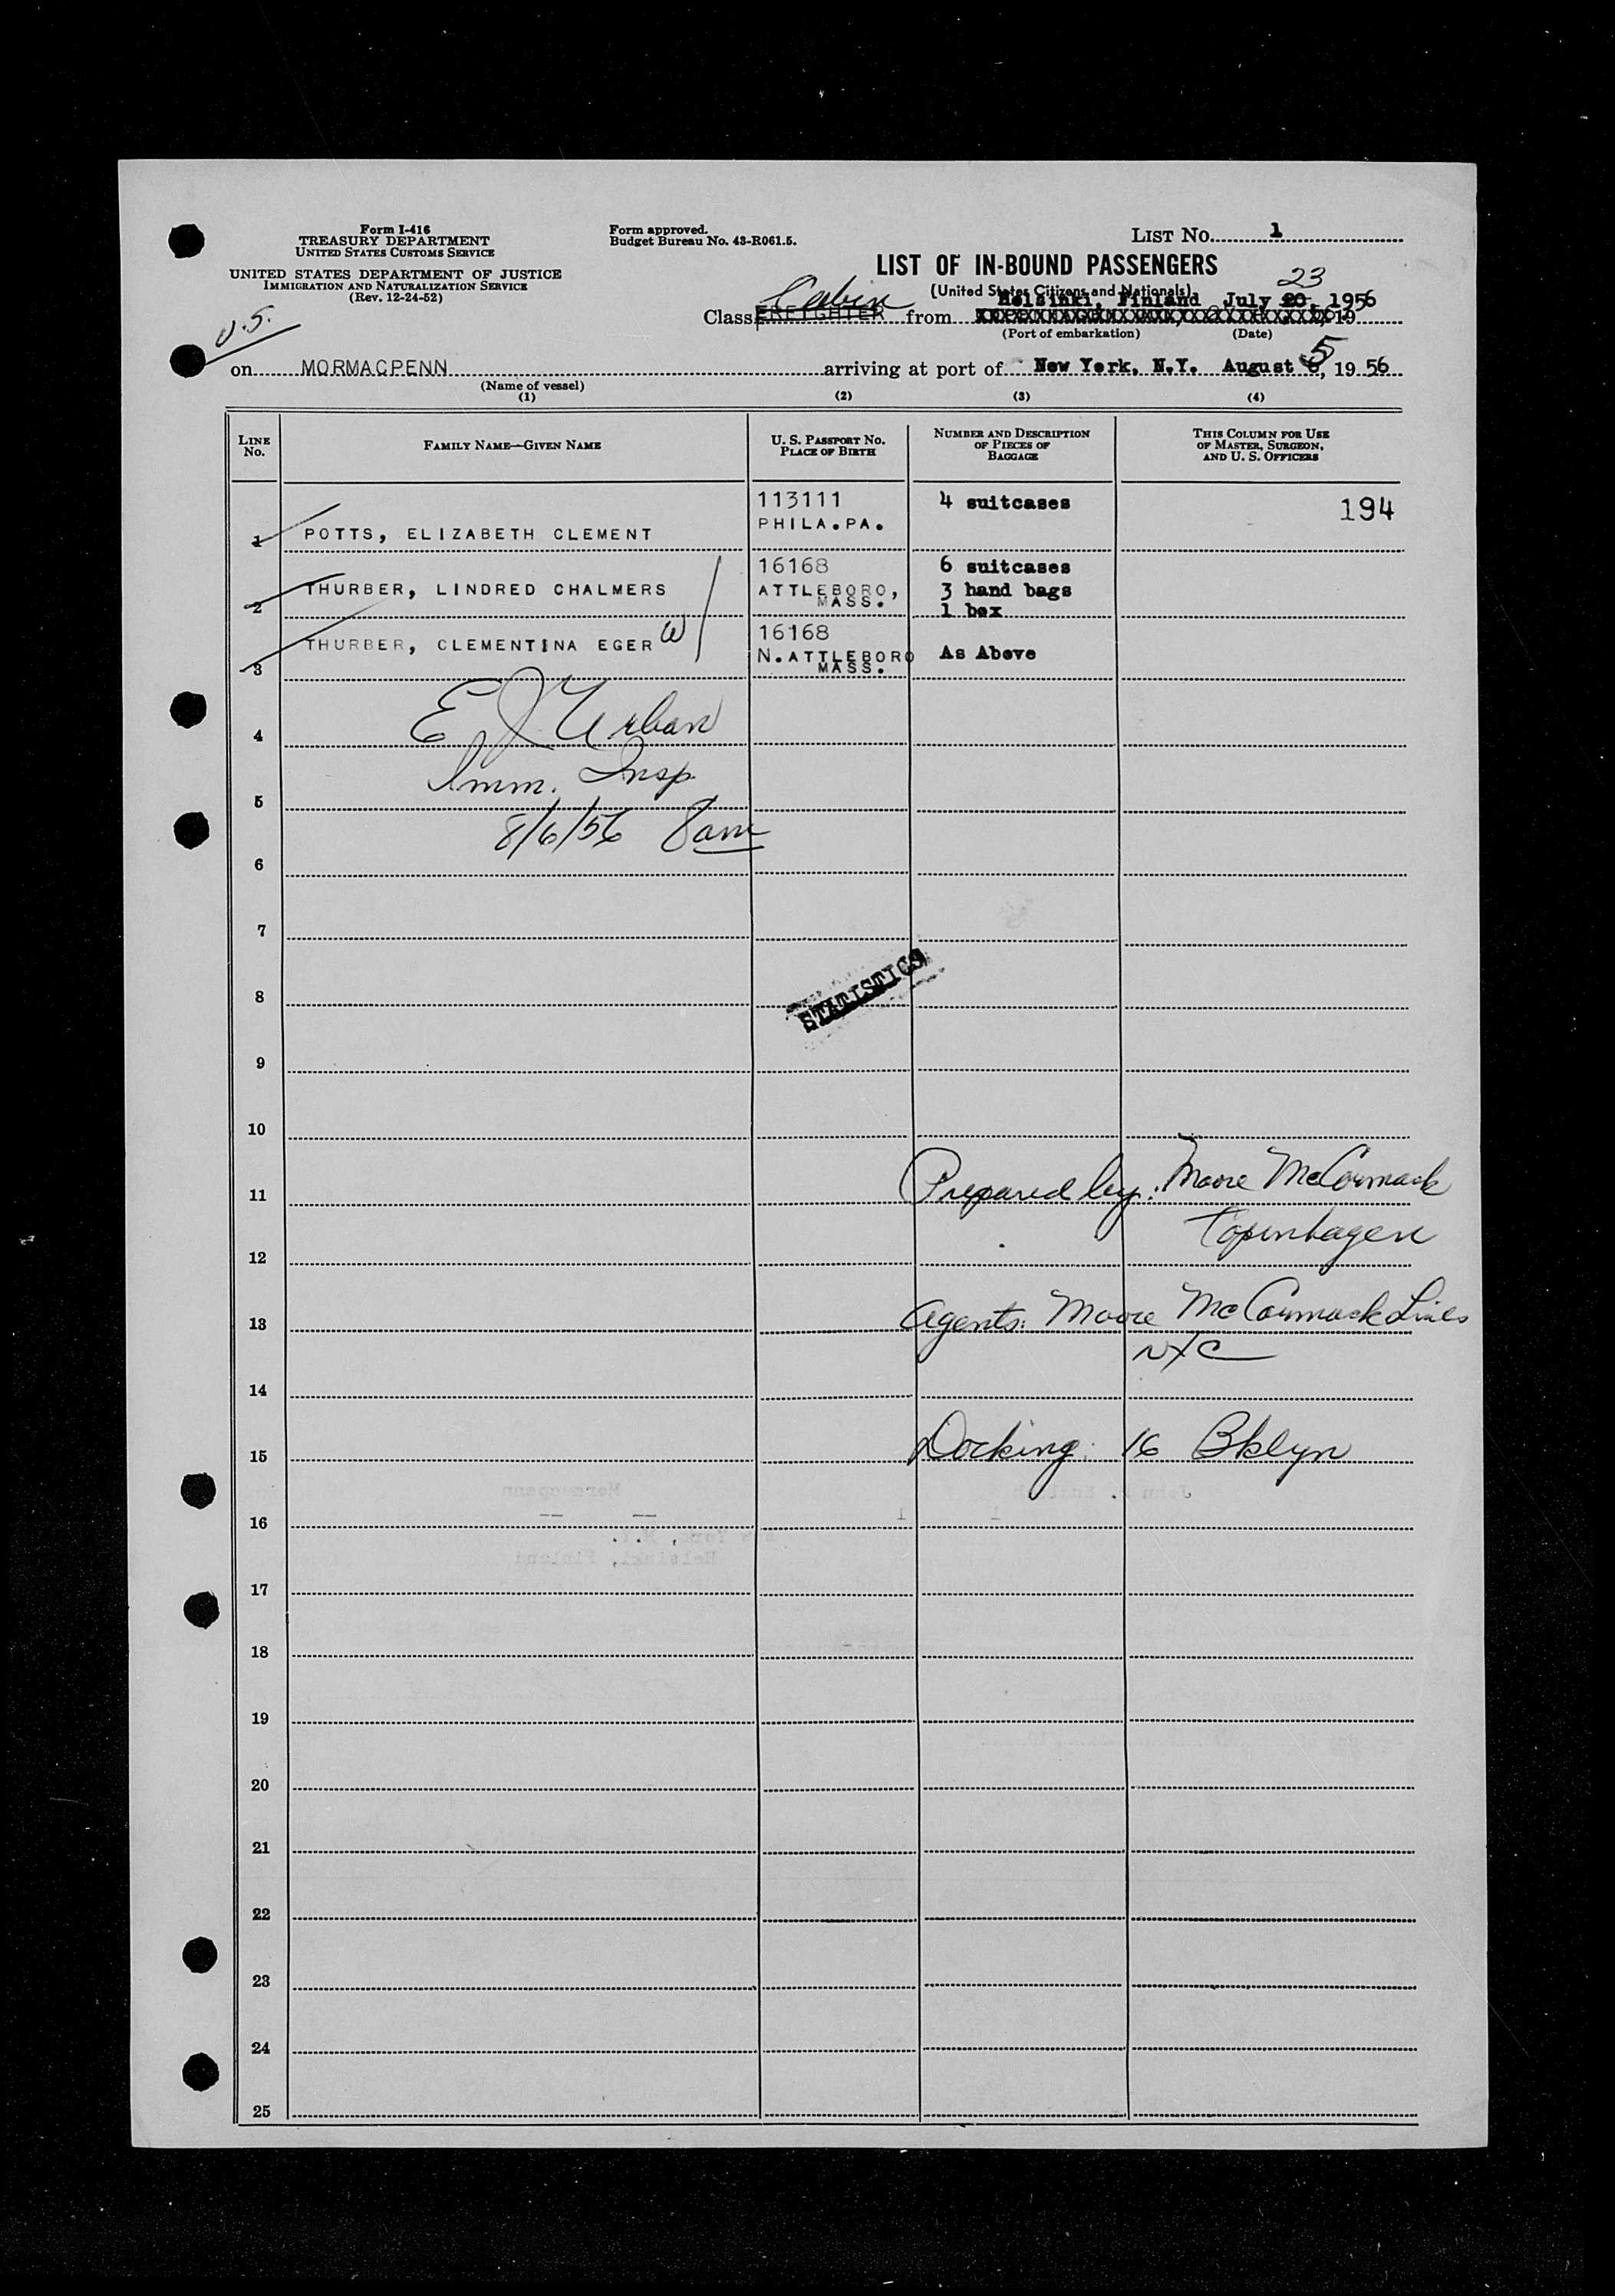 Form I-416
TREASURY DEPARTMENT
UNITED STATES CUSTOMS SERVICE
UNITED STATES DEPARTMENT OF JUSTICE
IMMIGRATION AND NATURALIZATION SERVICE
(Rev. 12-24-52)
Form approved.
Budget Bureau No. 43-R061.5.
LIST No. 1
LIST OF IN-BOUND PASSENGERS
(United States Citizens and Nationals)
23
U.S.
Cabin
Helsinki, Finland July 20, 1956
Class FREIGHTER from 19
(Port of embarkation) (Date)
on MORMACPENN arriving at port of New York, N.Y. August 5, 1956
(Name of vessel)
(1) (2) (3) (4)
LINE No.
FAMILY NAME—GIVEN NAME
U. S. PASSPORT NO. PLACE OF BIRTH
NUMBER AND DESCRIPTION OF PIECES OF BAGGAGE
THIS COLUMN FOR USE OF MASTER, SURGEON, AND U. S. OFFICERS
113111 4 suitcases 194
1 POTTS, ELIZABETH CLEMENT PHILA.PA.
16168 6 suitcases
2 THURBER, LINDRED CHALMERS ATTLEBORO, 3 hand bags
MASS. 1 box
16168
3 THURBER, CLEMENTINA EGER W N.ATTLEBORO As Above
MASS.
4 E J Urban
5 Imm. Insp.
8/6/56 8am
6
7
STATISTICS
8
9
10
11 Prepared by: Moore McCormack
Copenhagen
12
13 Agents: Moore McCormack Lines
NYC
14
15 Docking: 16 Bklyn
16
17
18
19
20
21
22
23
24
25